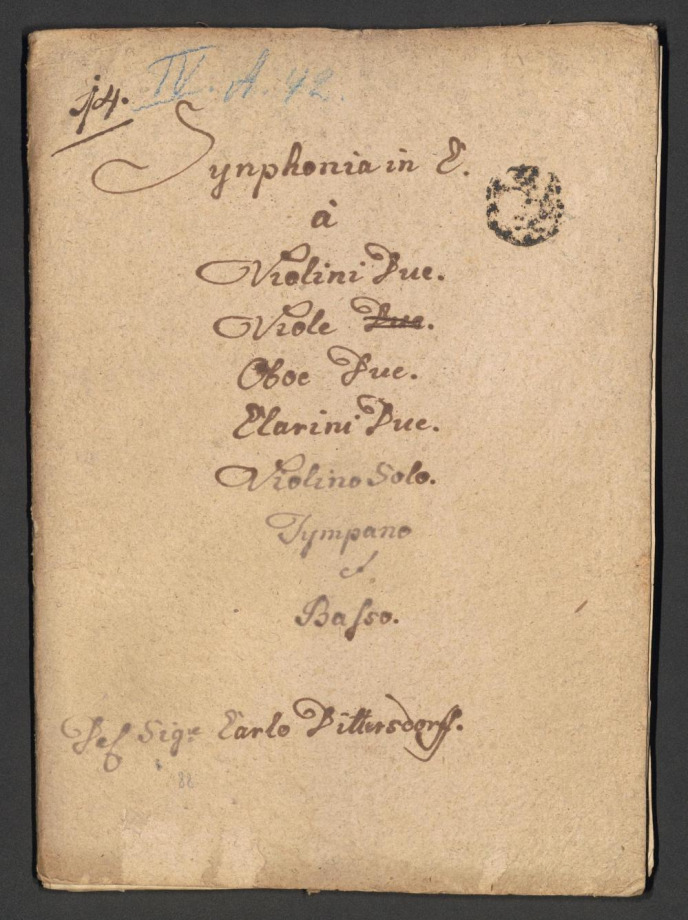 IV. A. 42.
14.
Synphonia in C.
à
Violini Due.
Viole Due.
Oboe Due.
Clarini Due.
Violino Solo.
Tympano
et
Basso.
Del Sigre Carlo Dittersdorff.
88